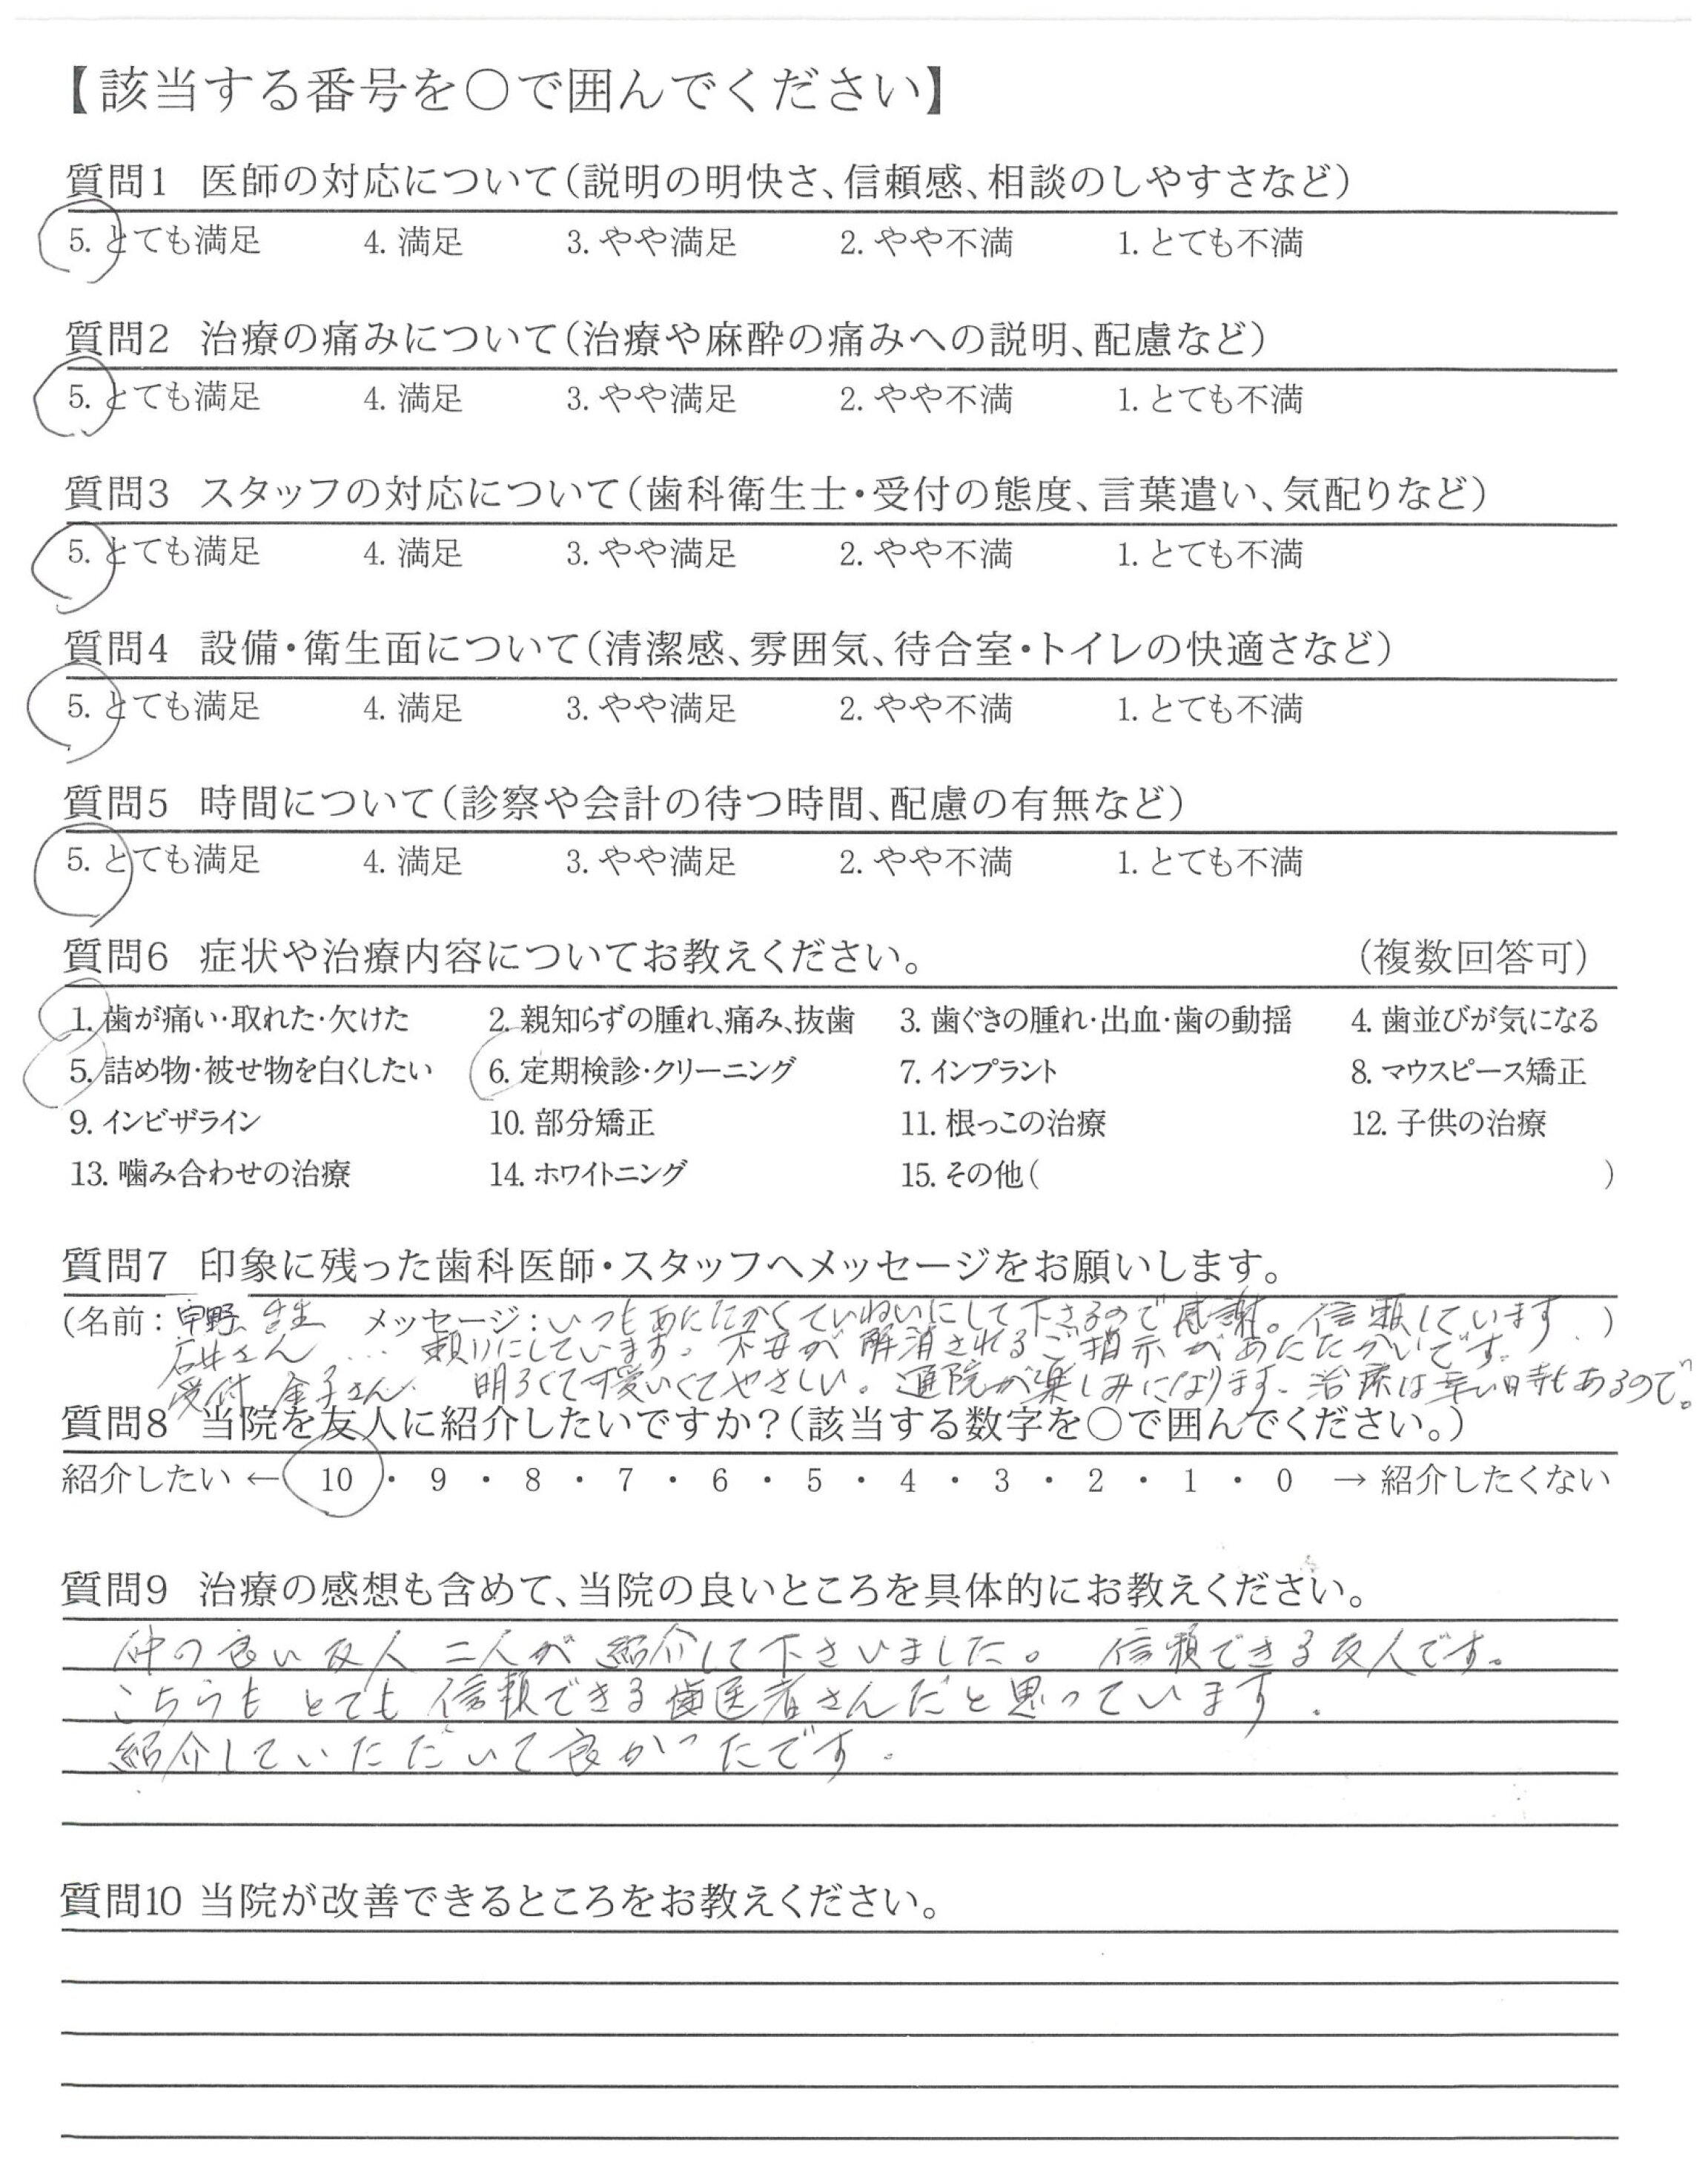 【該当する番号を○で囲んでください】
質問1 医師の対応について（説明の明快さ、信頼感、相談のしやすさなど）
5. とても満足 4. 満足 3. やや満足 2. やや不満 1. とても不満
質問2 治療の痛みについて（治療や麻酔の痛みへの説明、配慮など）
5. とても満足 4. 満足 3. やや満足 2. やや不満 1. とても不満
質問3 スタッフの対応について（歯科衛生士・受付の態度、言葉遣い、気配りなど）
5. とても満足 4. 満足 3. やや満足 2. やや不満 1. とても不満
質問4 設備・衛生面について（清潔感、雰囲気、待合室・トイレの快適さなど）
5. とても満足 4. 満足 3. やや満足 2. やや不満 1. とても不満
質問5 時間について（診察や会計の待つ時間、配慮の有無など）
5. とても満足 4. 満足 3. やや満足 2. やや不満 1. とても不満
質問6 症状や治療内容についてお教えください。 （複数回答可）
1. 歯が痛い・取れた・欠けた 2. 親知らずの腫れ、痛み、抜歯 3. 歯ぐきの腫れ・出血・歯の動揺 4. 歯並びが気になる
5. 詰め物・被せ物を白くしたい 6. 定期検診・クリーニング 7. インプラント 8. マウスピース矯正
9. インビザライン 10. 部分矯正 11. 根っこの治療 12. 子供の治療
13. 噛み合わせの治療 14. ホワイトニング 15. その他（ ）
質問7 印象に残った歯科医師・スタッフへメッセージをお願いします。
（名前：宇野先生 メッセージ：いつもあたたかくていねいにして下さるので感謝。信頼しています．）
石井さん … 頼りにしています。不安が解消されるご指示があたたかいです。
受付 金子さん． 明るくて可愛いくてやさしい。通院が楽しみになります。治療は辛い時もあるので。
質問8 当院を友人に紹介したいですか？（該当する数字を○で囲んでください。）
紹介したい ← 10 ・ 9 ・ 8 ・ 7 ・ 6 ・ 5 ・ 4 ・ 3 ・ 2 ・ 1 ・ 0 → 紹介したくない
質問9 治療の感想も含めて、当院の良いところを具体的にお教えください。
仲の良い友人 二人が紹介して下さいました。 信頼できる友人です。
こちらも とても 信頼できる歯医者さんだと思っています．
紹介していただいて良かったです．
質問10 当院が改善できるところをお教えください。